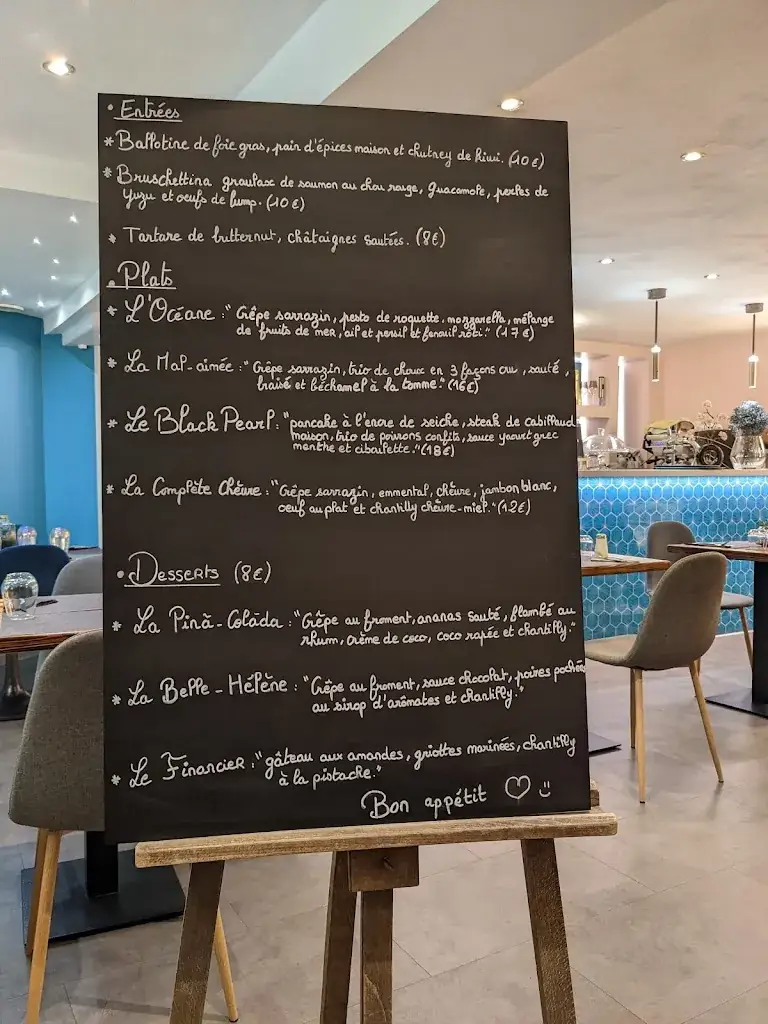 • Entrées
* Ballotine de foie gras, pain d'épices maison et chutney de kiwi. (10€)
* Bruschettina graulax de saumon au chou rouge, guacamole, perles de
yuzu et oeufs de lump. (10€)
* Tartare de butternut, châtaignes sautées. (8€)
• Plats
* L'Océane : "Crêpe sarrazin, pesto de roquette, mozzarella, mélange
de fruits de mer, ail et persil et fenouil rôti." (17€)
* La Mal-aimée : "Crêpe sarrazin, trio de choux en 3 façons cru, sauté,
braisé et béchamel à la tomme." (16€)
* Le Black Pearl : "pancake à l'encre de seiche, steak de cabillaud
maison, trio de poivrons confits, sauce yaourt grec
menthe et ciboulette." (18€)
* La Complète Chèvre : "Crêpe sarrazin, emmental, chèvre, jambon blanc,
oeuf au plat et chantilly chèvre-miel." (12€)
• Desserts (8€)
* La Pinã-Colàda : "Crêpe au froment, ananas sauté, flambé au
rhum, crème de coco, coco rapée et chantilly."
* La Belle-Hélène : "Crêpe au froment, sauce chocolat, poires pochées
au sirop d'arômates et chantilly."
* Le Financier : "gâteau aux amandes, griottes marinées, chantilly
à la pistache."
Bon appétit ♡ :)